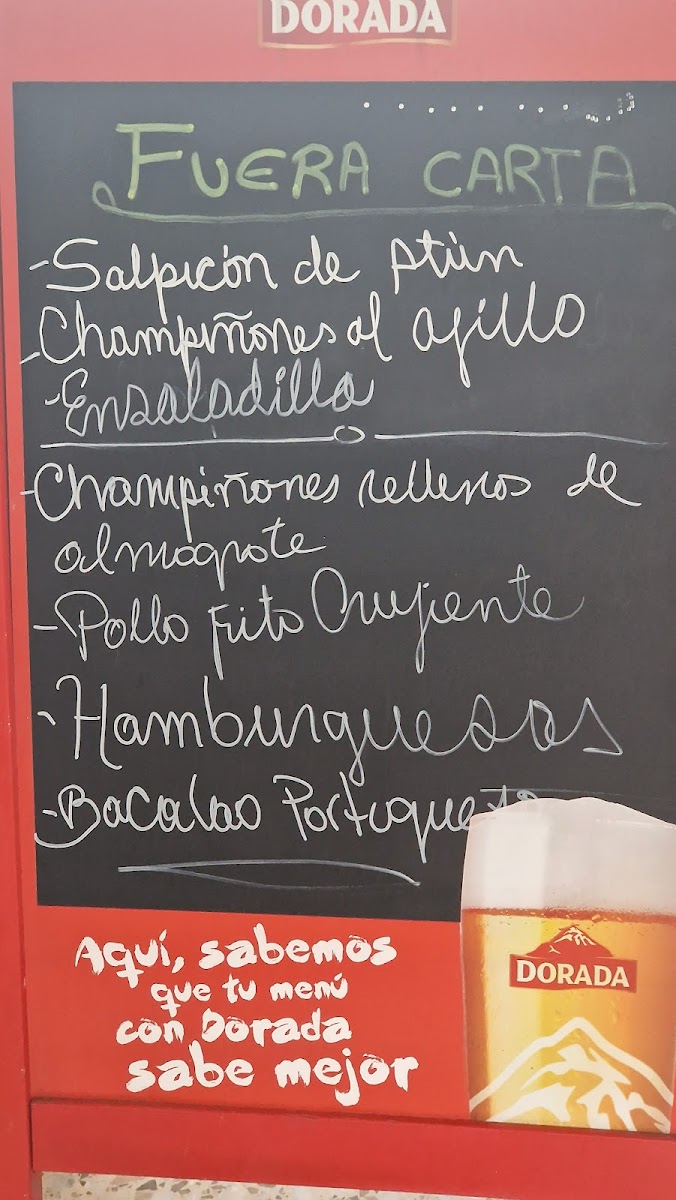 DORADA
FUERA CARTA
-Salpicón de Atún
-Champiñones al ajillo
-Ensaladilla
-Champiñones rellenos de
almogrote
-Pollo frito Crujiente
-Hamburguesas
-Bacalao Portuguesa
Aquí, sabemos
que tu menú
con Dorada
sabe mejor
DORADA